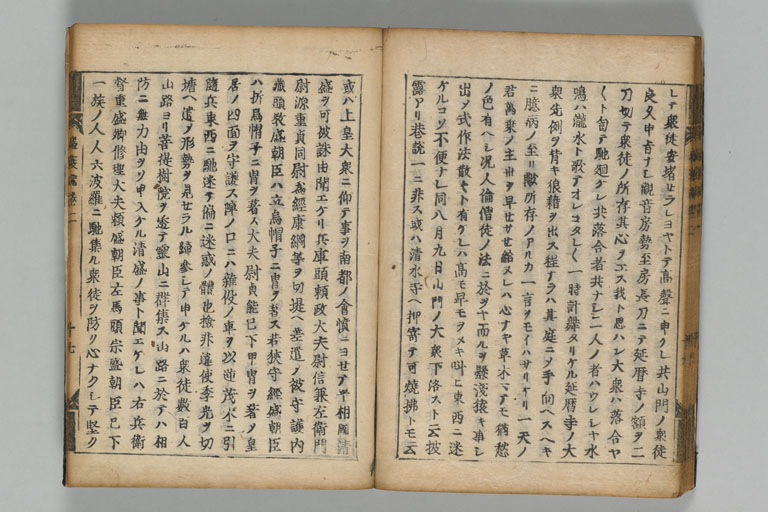 シテ衆徒安堵セラレヨヤトテ高聲ニ申ケレ共山門ノ衆徒
良久申者ナシ觀音房勢至房長刀ニテ延暦寺ノ額ヲ二
刀切テ衆徒ノ所存其心ヲエス我ト思ハン大衆ハ落合ヤ
〱ト匐テ馳廻ケレ共落合者共ナシ一人ノ者ハウレシヤ水
鳴ハ瀧水ト歌テオレコタレ〱一時計舞タリケル延暦寺ノ大
衆先例ヲ背キ狼籍ヲ出ス程ナラハ其庭ニシテ手向ヘスヘキ
ニ臆病ノ至リ歟所存ノアルカ一言ヲモイハサリケリ一天ノ
君萬乗ノ主世ヲ早セサセ給メレハ心ナキ草木マテモ猶愁
ノ色有ヘシ况人倫僧徒ノ法ニ於ヲヤ而ルヲ懸淺猿キ事シ
出シ式作法散〱ト有ケレハ高モ早モヲメキ叫ヒ東西ニ迷
ケルコソ不便ナレ同八月九日山門ノ大衆下洛スト云披
露アリ巷説一ニ非ス或ハ清水寺ヘ押寄テ可燒拂トモ云
或ハ上皇大衆ニ仰テ事ヲ南都ノ會憤ニヨセテ平相國清
盛ヲ可被誅由聞エケリ兵庫頭頼政大夫尉信兼左衛門
尉源重貞同尉為經康綱等ヲ切堤ヘ差遣ノ被守護内
蔵頭教盛朝臣ハ立烏帽子ニ冑ヲ著ス若狭守經盛朝臣
ハ折烏帽子ニ冑ヲ著ス大夫尉貞能已下甲冑ヲ著ノ皇
居ノ四面ヲ守護ス陣ノ口ニハ雜役ノ車ヲ以逆茂木ニ引
隨兵東西ニ馳迷テ備ニ迷惑ノ體也檢非違使季光ヲ切
堤ヘ遣ノ形勢ヲ見セラル歸參シテ申ケルハ衆徒數百人
山路ヨリ菩提樹院ヲ透テ靈山ニ群集ス山路ニ於テハ相
防ニ無力由ヲソ申入ケル清盛ノ事ト聞エケレハ右兵衛
督重盛卿修理大夫頼盛朝臣左馬頭宗盛朝臣已下
一族ノ人人六波羅ニ馳集ル衆徒ヲ防ク心ナクシテ堅ク
十七